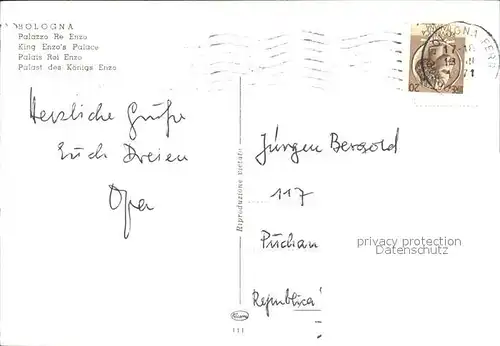 BOLOGNA
Palazzo Re Enzo
King Enzo's Palace
Palais Roi Enzo
Palast des Königs Enzo
Herzliche Grüße
Euch Dreien
Opa
Riproduzione vietata
111
Jürgen Bergold
117
Puchau
Republica
privacy protection
Datenschutz